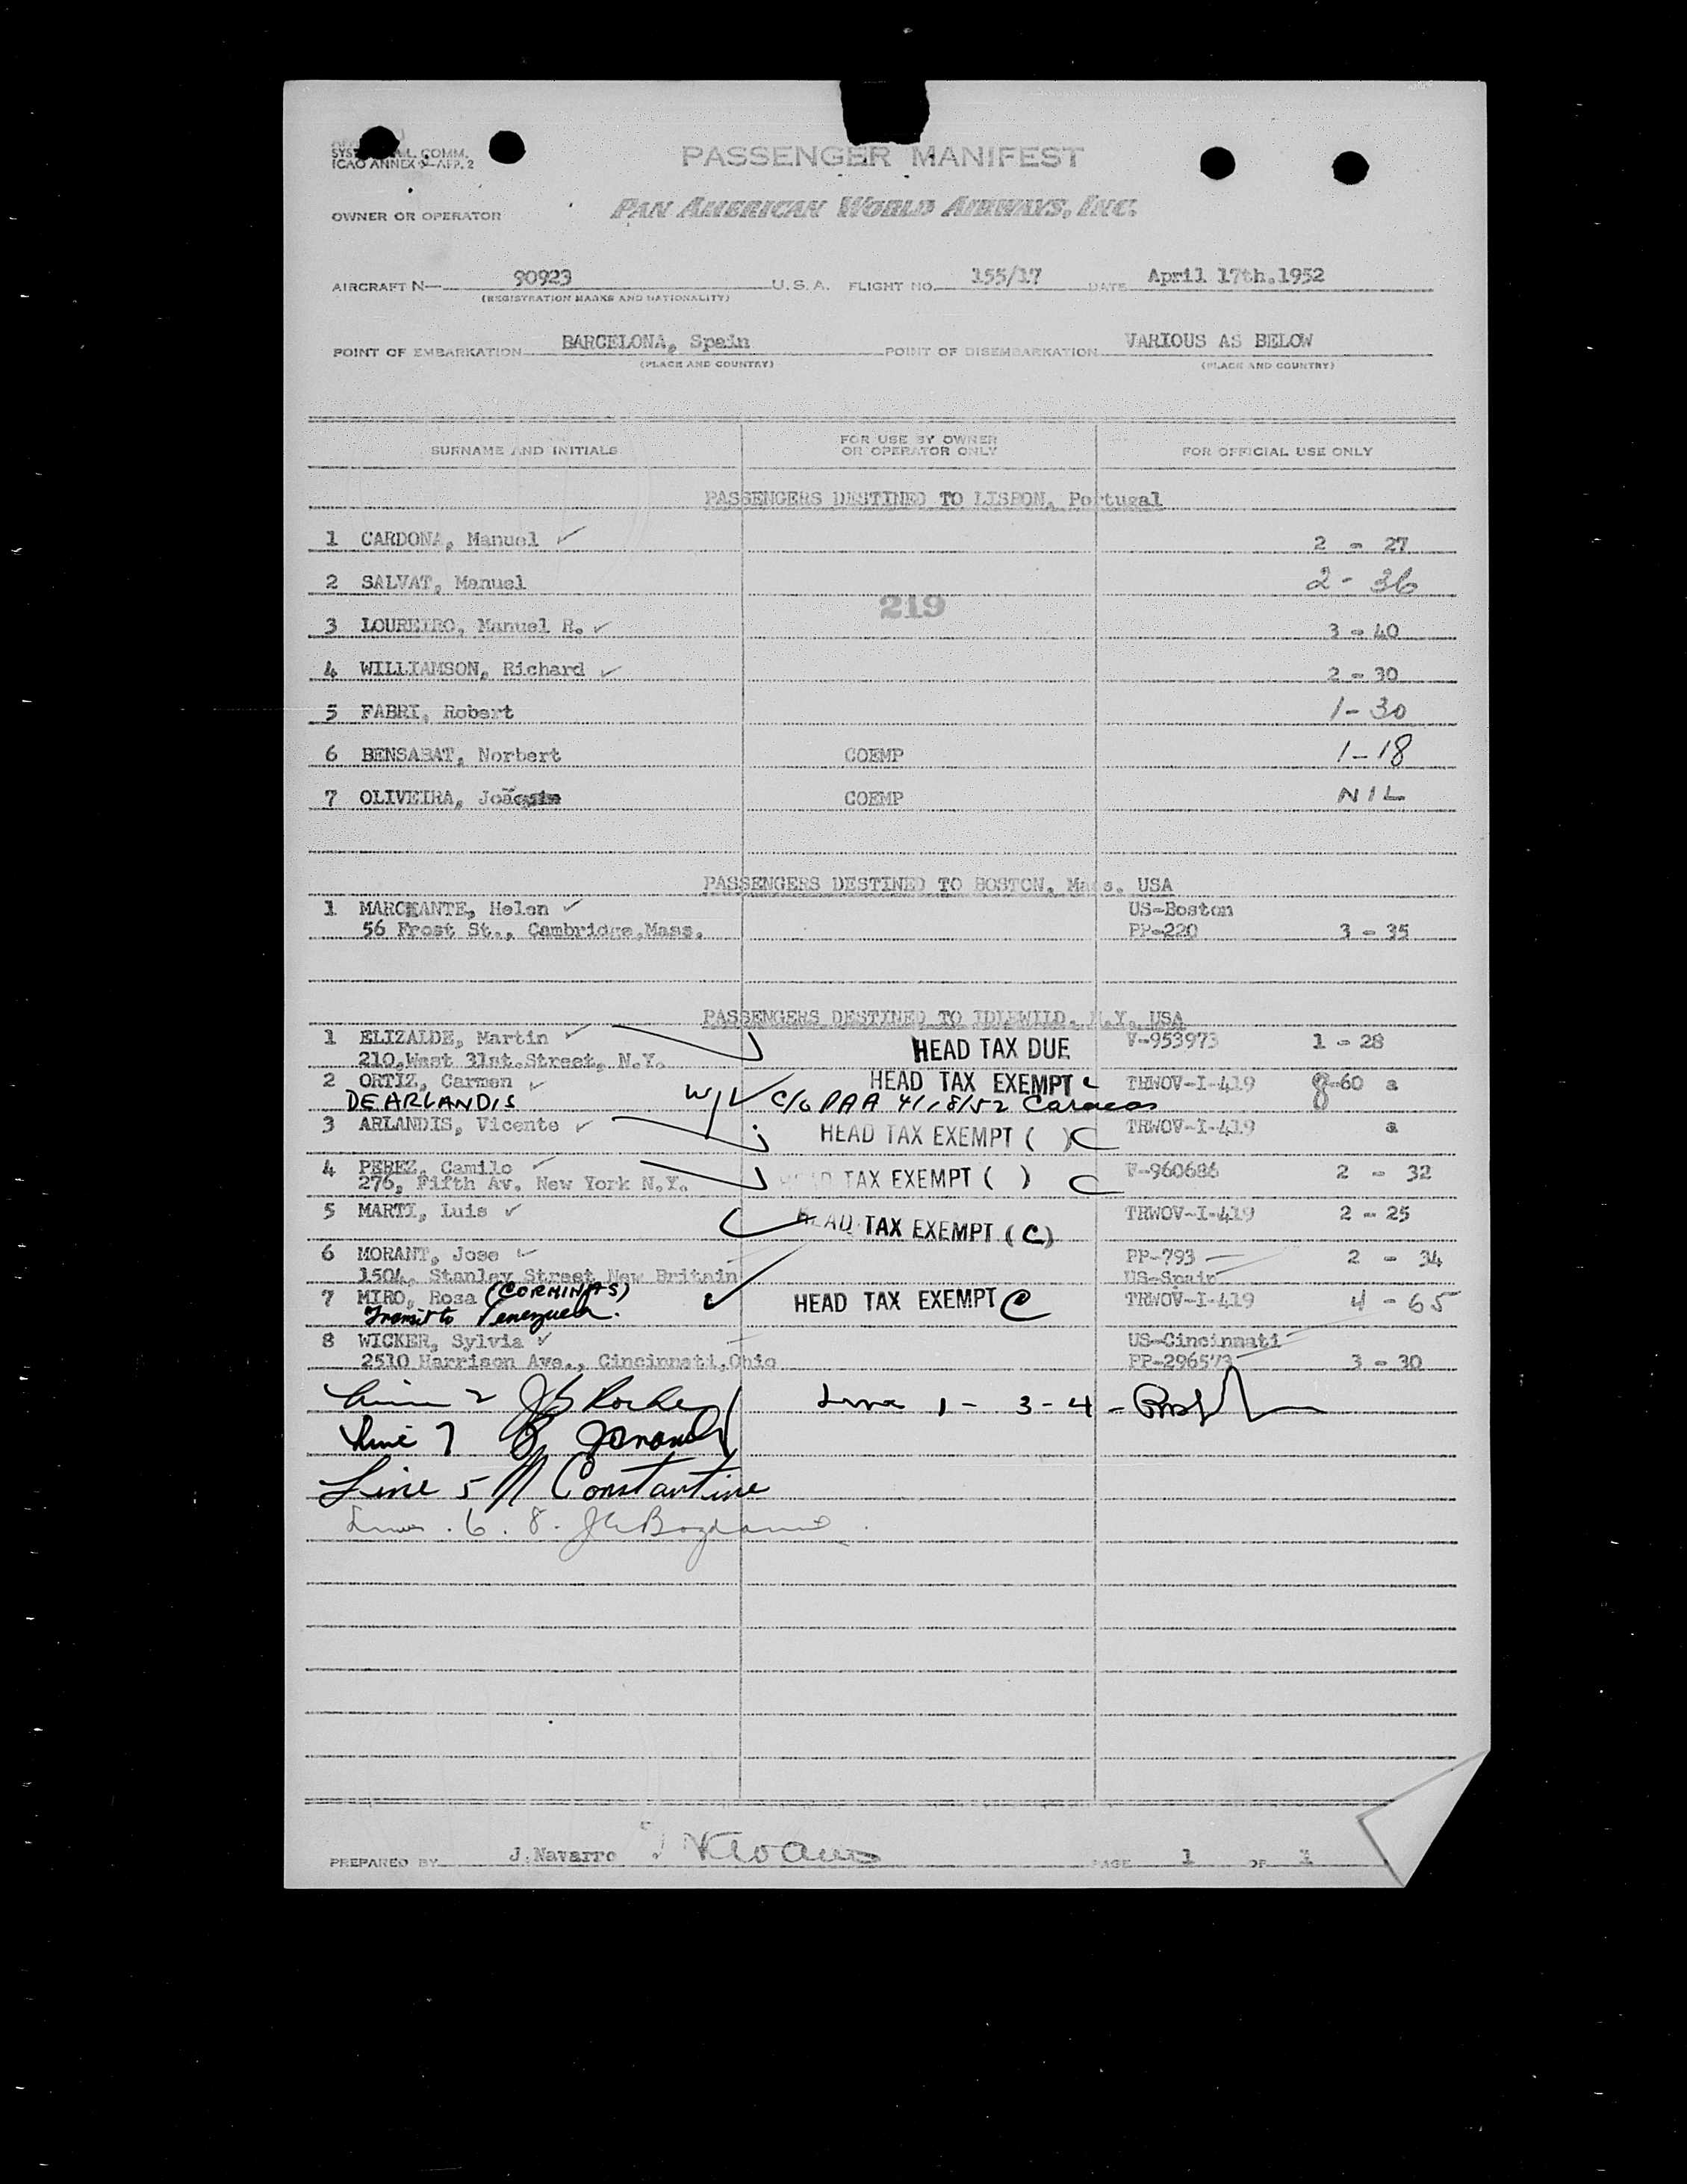 SYST COMM.
ICAO ANNEX 9-APP. 2
PASSENGER MANIFEST
OWNER OR OPERATOR PAN AMERICAN WORLD AIRWAYS, INC.
AIRCRAFT N— 90923 U.S.A. FLIGHT NO. 155/17 DATE April 17th.1952
(REGISTRATION MARKS AND NATIONALITY)
POINT OF EMBARKATION BARCELONA, Spain POINT OF DISEMBARKATION VARIOUS AS BELOW
(PLACE AND COUNTRY) (PLACE AND COUNTRY)
SURNAME AND INITIALS FOR USE BY OWNER OR OPERATOR ONLY FOR OFFICIAL USE ONLY
PASSENGERS DESTINED TO LISBON, Portugal
1 CARDONA, Manuel ✓ 2 - 27
2 SALVAT, Manuel 2 - 36
219
3 LOUREIRO, Manuel R. ✓ 3 - 40
4 WILLIAMSON, Richard ✓ 2 - 30
5 FABRI, Robert 1-30
6 BENSABAT, Norbert COEMP 1-18
7 OLIVEIRA, João COEMP NIL
PASSENGERS DESTINED TO BOSTON, Mass. USA
1 MARCHANTE, Helen ✓ US-Boston
56 Frost St., Cambridge,Mass. PP-220 3 - 35
PASSENGERS DESTINED TO IDLEWILD, N.Y. USA
1 ELIZALDE, Martin ✓ HEAD TAX DUE V-953973 1 - 28
210,West 31st.Street, N.Y.
2 ORTIZ, Carmen ✓ HEAD TAX EXEMPT C TRWOV-I-419 8-60 a
DE ARLANDIS W/V C/O PAA 4/18/52 Caracas
3 ARLANDIS, Vicente ✓ HEAD TAX EXEMPT ( ) C TRWOV-I-419 a
4 PEREZ, Camilo ✓ HEAD TAX EXEMPT ( ) C V-960686 2 - 32
276, Fifth Av. New York N.Y.
5 MARTI, Luis ✓ HEAD TAX EXEMPT (C) TRWOV-I-419 2 - 25
6 MORANT, Jose ✓ PP-793 2 - 34
1504, Stanley Street New Britain US-Spain
7 MIRO, Rosa (CORMINAS) ✓ HEAD TAX EXEMPT C TRWOV-I-419 4 - 65
Transit to Venezuela.
8 WICKER, Sylvia ✓ US-Cincinnati
2510 Harrison Ave., Cincinnati,Ohio PP-296573 3 - 30
Line 2 Line 1 - 3 - 4 -
Line 7
Line 5 M Constantine
Lines . 6 . 8 .
PREPARED BY J.Navarro PAGE 1 OF 1